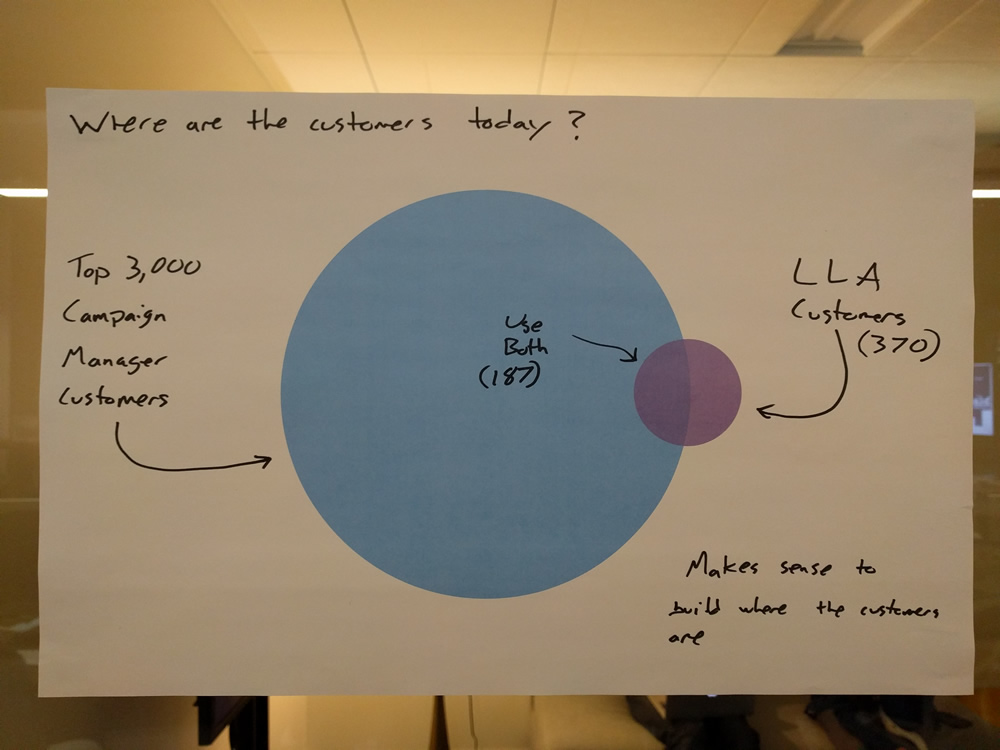 Where are the customers today?
Top 3,000
Campaign
Manager
Customers
Use
Both
(187)
LLA
Customers
(370)
Makes sense to
build where the customers
are